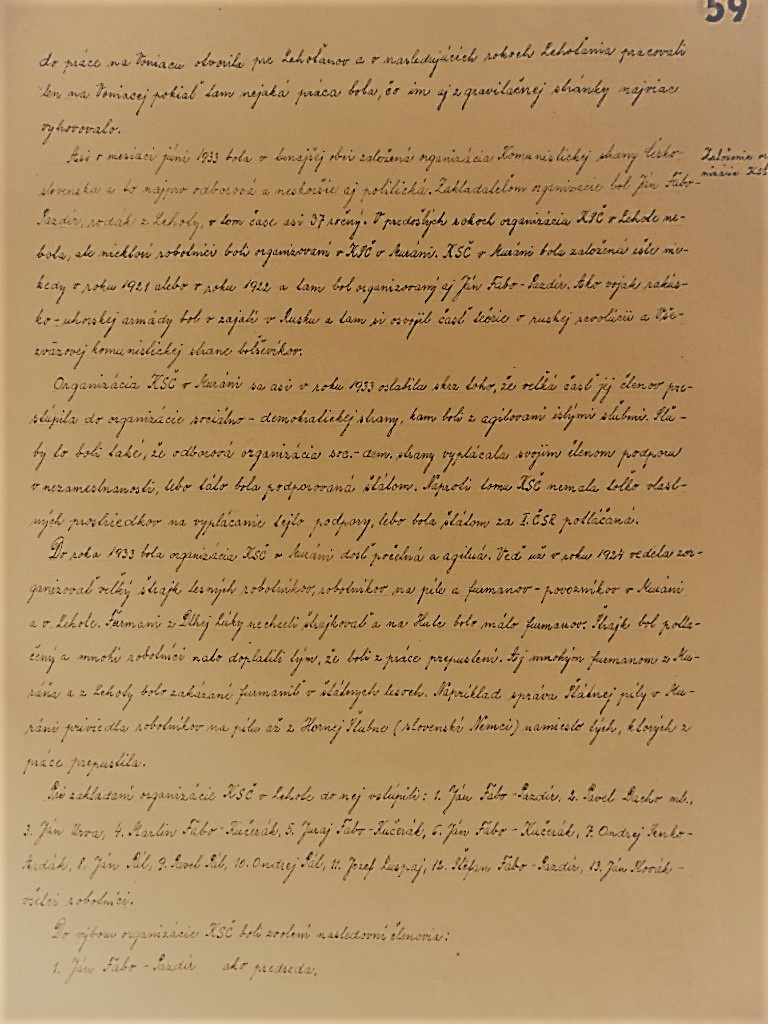 59
do práce na Voniacu otvorila pre Lehoťanov a v nasledujúcich rokoch Lehoťania pracovali
len na Voniacej pokiaľ tam nejaká práca bola, čo im aj z gravitačnej stránky najviac
vyhovovalo.
Asi v mesiaci júni 1933 bola v tunajšej obci založená organizácia Komunistickej strany Česko-
slovenska a to najprv odborová a neskoršie aj politická. Zakladateľom organizácie bol Ján Fabo-
Založenie or-
nizácie KSČ
Gazdír, rodák z Lehoty, v tom čase asi 37 ročný. V predošlých rokoch organizácia KSČ v Lehote ne-
bola, ale niektorí robotníci boli organizovaní v KSČ v Muráni. KSČ v Muráni bola založená ešte nie-
kedy v roku 1921 alebo v roku 1922 a tam bol organizovaný aj Ján Fabo-Gazdír. Ako vojak rakús-
ko-uhorskej armády bol v zajatí v Rusku a tam si osvojil časť teórie o ruskej revolúcii a Vše-
zväzovej komunistickej strane boľševikov.
Organizácia KSČ v Muráni sa asi v roku 1933 oslabila skrz toho, že veľká časť jej členov pre-
stúpila do organizácie sociálno-demokratickej strany, kam boli z agitovaní istými sľubmi. Sľu-
by to boli také, že odborová organizácia soc.-dem. strany vyplácala svojim členom podporu
v nezamestnanosti, lebo táto bola podporovaná štátom. Naproti tomu KSČ nemala toľko vlast-
ných prostriedkov na vyplácanie tejto podpory, lebo bola štátom za I. ČSR potláčaná.
Do roku 1933 bola organizácia KSČ v Muráni dosť početná a agilná. Veď už v roku 1924 vedela zor-
ganizovať veľký štrajk lesných robotníkov, robotníkov na píle a furmanov-povozníkov v Muráni
a v Lehote. Furmani z Dlhej Lúky nechceli štrajkovať a na Hute bolo málo furmanov. Štrajk bol potla-
čený a mnohí robotníci nato doplatili tým, že boli z práce prepustení. Aj mnohým furmanom z Mu-
ráňa a z Lehoty bolo zakázané furmaniť v štátnych lesoch. Napríklad správa Štátnej píly v Mu-
ráni priviedla robotníkov na pílu až z Hornej Štubne (slovenskí Nemci) namiesto tých, ktorých z
práce prepustila.
Pri zakladaní organizácie KSČ v Lehote do nej vstúpili: 1. Ján Fabo-Gazdír, 2. Pavel Dacho ml.,
3. Ján Urva, 4. Martin Fabo-Kučerák, 5. Juraj Fabo-Kučerák, 6. Ján Fabo-Kučerák, 7. Ondrej
8. Ján Pál, 9. Pavel Pál, 10. Ondrej Pál, 11. Jozef Luspaj, 12. Štefan Fabo-Gazdír, 13. Ján Novák-
všetci robotníci.
Do výboru organizácie KSČ boli zvolení nasledovní členovia:
1. Ján Fabo-Gazdír ako predseda.